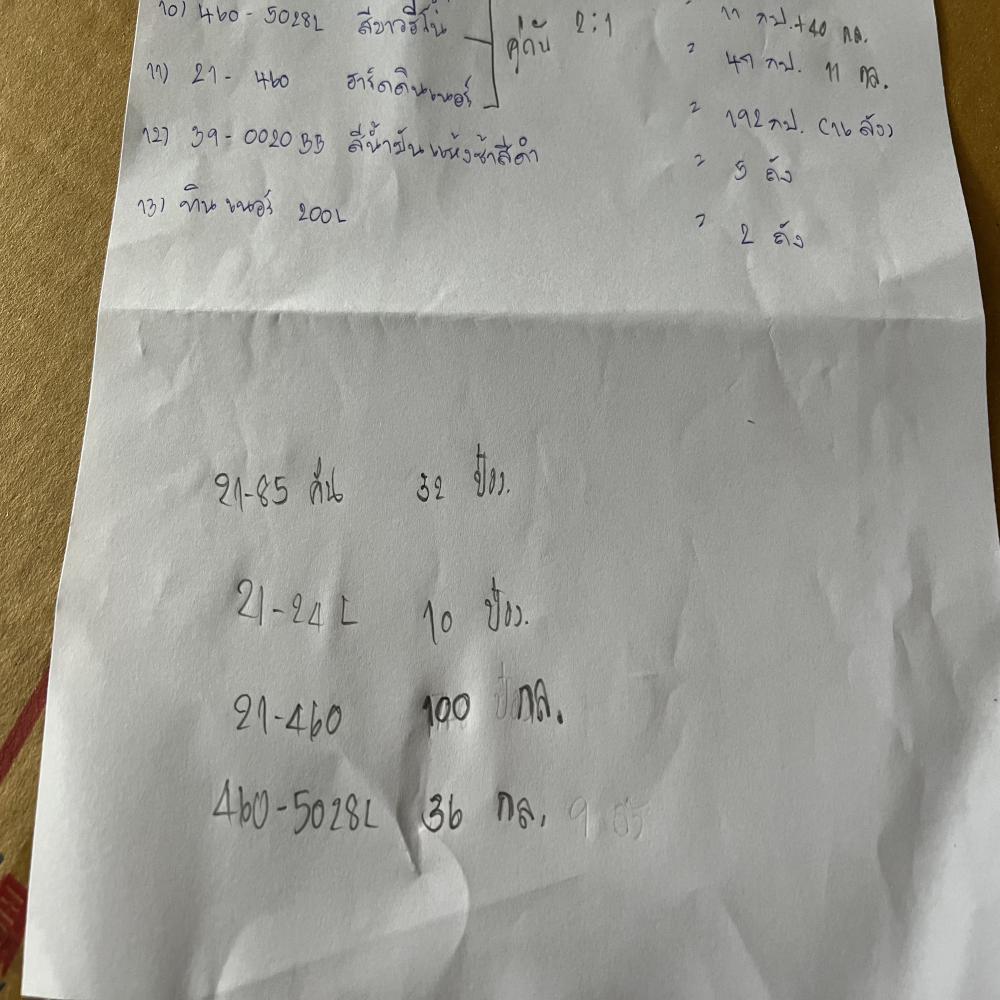 10) 460-5028L สีขาวอีโน่ คู่กับ 2:1 11 กป.+40 กล.
11) 21-460 ฮาร์ดดินเนอร์ " 47 กป. 11 กล.
12) 39-0020BB สีน้ำมันแห้งช้าสีดำ " 192 กป. (16 ลัง)
" 5 ถัง
13) ทินเนอร์ 200L " 2 ถัง
21-85 32 ป๋อง.
21-24L 10 ป๋อง.
21-460 100 กล.
460-5028L 36 กล.